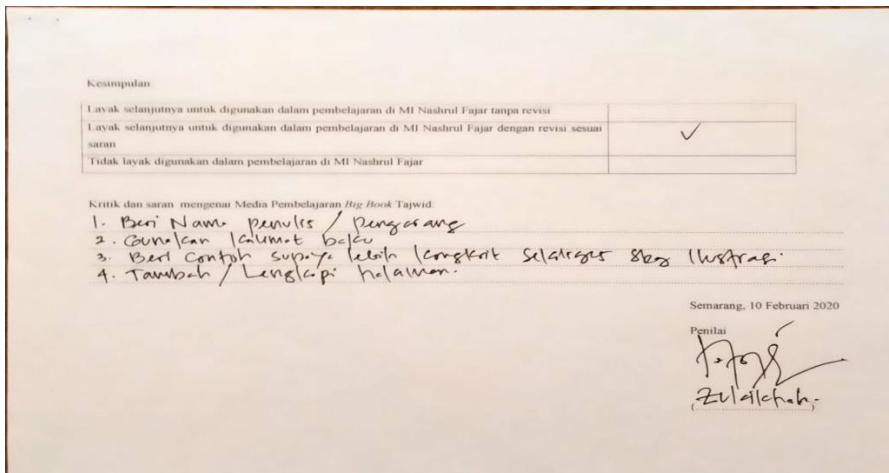 Kesimpulan
Layak selanjutnya untuk digunakan dalam pembelajaran di MI Nashrul Fajar tanpa revisi
Layak selanjutnya untuk digunakan dalam pembelajaran di MI Nashrul Fajar dengan revisi sesuai
saran
✓
Tidak layak digunakan dalam pembelajaran di MI Nashrul Fajar
Kritik dan saran mengenai Media Pembelajaran Big Book Tajwid
1. Beri Nama penulis / pengarang
2. Gunakan kalimat baku
3. Beri contoh supaya lebih kongkrit sekaligus sbg ilustrasi.
4. Tambah / Lengkapi halaman.
Semarang, 10 Februari 2020
Penilai
(Zulaikhah.)